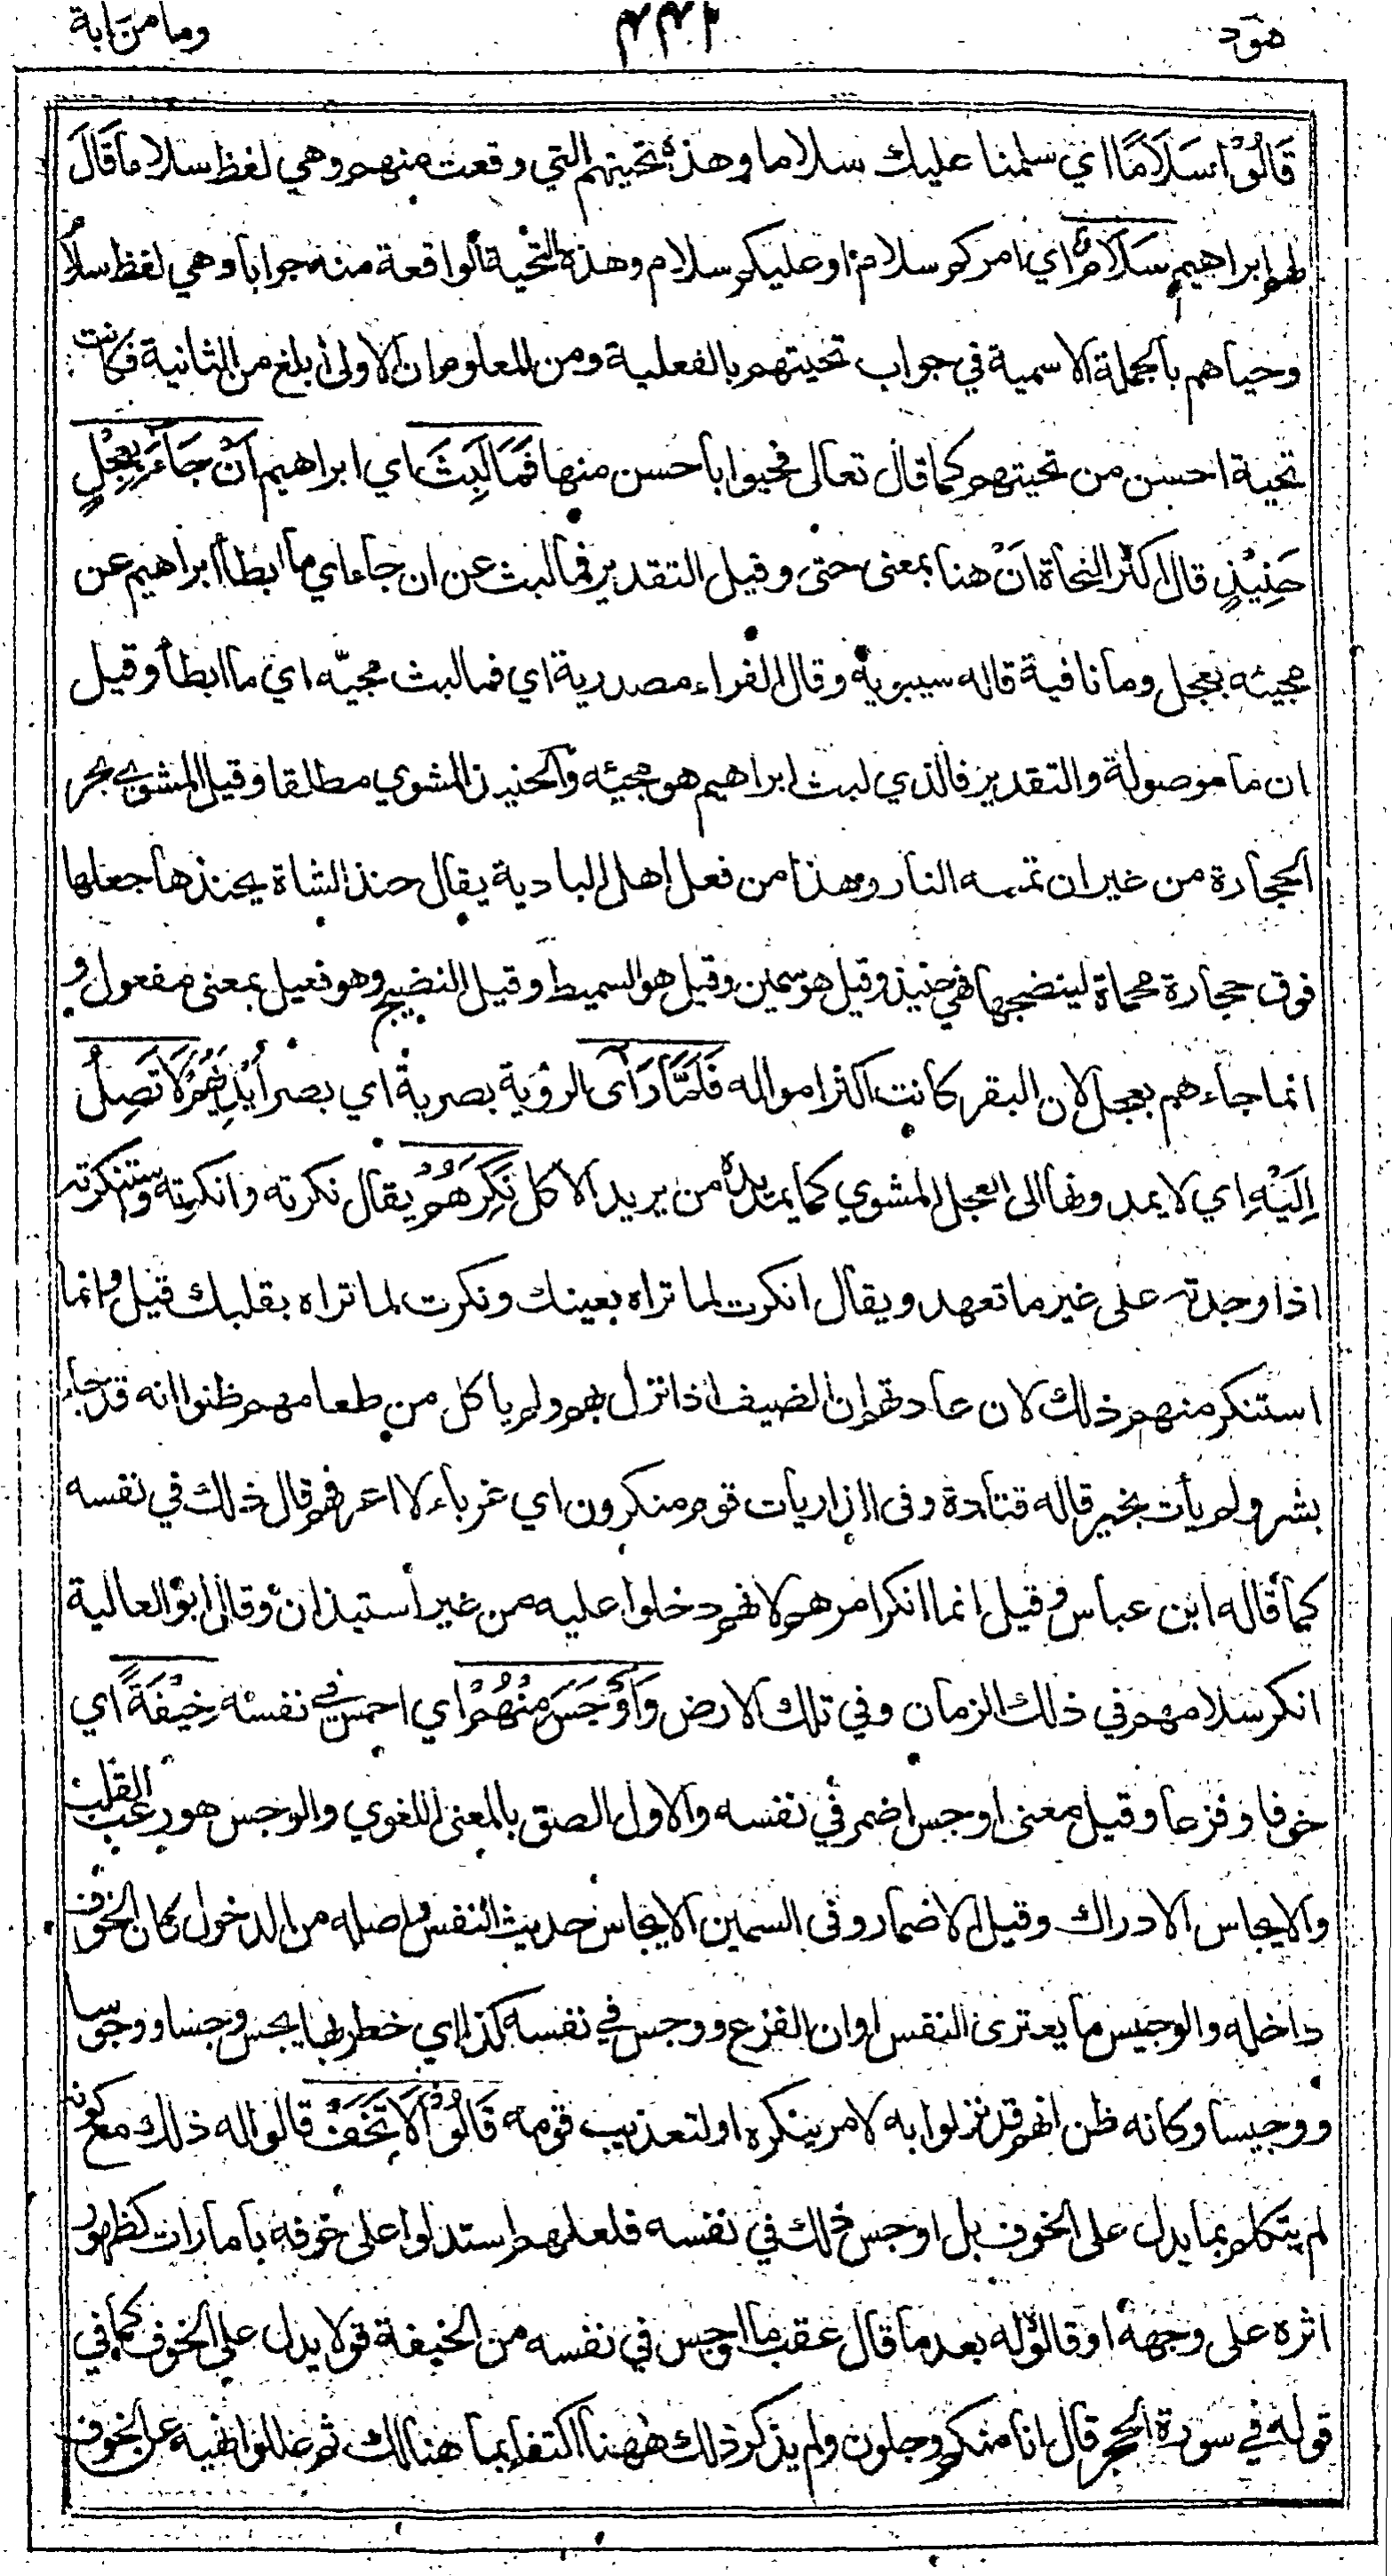 هود ٤٤٢ وما من دابة
قَالُوْا سَلَامًا اي سلمنا عليك سلاما وهذه تحيتهم التي وقعت منهم وهي لفظ سلاما قَالَ
لهم ابراهيم سَلَامٌ اي امركم سلام او عليكم سلام وهذه التحية الواقعة منه جوابا وهي لفظ سلامٌ
وحياهم بالجملة الاسمية في جواب تحيتهم بالفعلية ومن المعلوم ان الاولى ابلغ من الثانية فكانت
تحية احسن من تحيتهم كما قال تعالى فحيوا باحسن منها فَمَا لَبِثَ اي ابراهيم اَنْ جَآءَ بِعِجْلٍ
حَنِيْذٍ قال اكثر النحاة اَنْ هنا بمعنى حتى وقيل التقدير فما لبث عن ان جاء اي ما ابطأ ابراهيم عن
مجيئه بعجل وما نافية قاله سيبويه وقال الفراء مصدرية اي فما لبث مجيّه اي ما ابطأ وقيل
ان ما موصولة والتقدير فالذي لبث ابراهيم هو مجيئه والحنيذ المشوي مطلقا وقيل المشوي بحر
الحجارة من غير ان تمسه النار وهذا من فعل اهل البادية يقال حنذ الشاة يحنذها جعلها
فوق حجارة محماة لينضجها فهي حنيذ وقيل هو سمين وقيل هو السميط وقيل النضيج وهو فعيل بمعنى مفعول و
انما جاءهم بعجل لان البقر كانت اكثر امواله فَلَمَّا رَآى الرؤية بصرية اي بصر أَيْدِيَهُمْ لَا تَصِلُ
اِلَيْهِ اي لا يمدونها الى العجل المشوي كما يمد يده من يريد الاكل نَكِرَهُمْ يقال نكرته وانكرته واستنكرته
اذا وجدته على غير ما تعهد ويقال انكرت لما تراه بعينك ونكرت لما تراه بقلبك قيل وانما
استنكر منهم ذلك لان عادتهم ان الضيف اذا نزل بهم ولم ياكل من طعامهم ظنوا انه قد جاء
بشر ولم يأت بخير قاله قتادة وفى الذاريات قوم منكرون اي غرباء لا اعرفهم قال ذلك في نفسه
كما قاله ابن عباس وقيل انما انكر امرهم لانهم دخلوا عليه من غير أستيذان وقال ابو العالية
انكر سلامهم في ذلك الزمان وفي تلك الارض وَاَوْجَسَ مِنْهُمْ اي احس في نفسه خِيْفَةً اي
خوفا وفزعا وقيل معنى اوجس اضمر في نفسه والاول الصق بالمعنى اللغوي والوجس هو رعب القلب
والايجاس الادراك وقيل الاضمار وفى السمين الايجاس حديث النفس واصله من الدخول كان الخوف
داخله والوجيس ما يعترى النفس اوان الفزع ووجس في نفسه كذا اي خطر بها يجس وجسا ووجوسا
ووجيسا وكانه ظن انهم قد نزلوا به لامر ينكره او لتعذيب قومه قَالُوْا لَا تَخَفْ قالوا له ذلك مع كونه
لم يتكلم بما يدل على الخوف بل اوجس ذلك في نفسه فلعلهم استدلوا على خوفه بامارات كظهور
اثره على وجهه او قالوا له بعد ما قال عقب ما اوجس في نفسه من الخيفة قولا يدل على الخوف كما في
قوله في سورة الحجر قال انا منكم وجلون ولم يذكر ذلك ههنا اكتفاء بما هنالك ثم عللوا نهيه عن الخوف